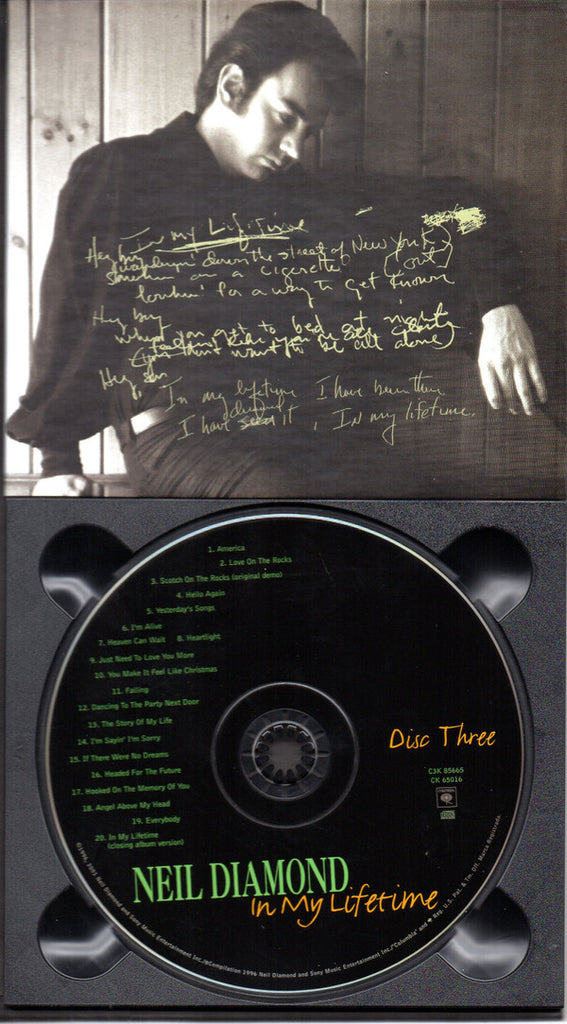 In my Lifetime
Hey boy
down the street of New York
(out)
on a cigarette
lookin' for a way to get known
Hey boy
when you get to bed at night
don't want to be all alone)
Hey, son
In my lifetime I have been there
I have seen it, In my lifetime.
1. America
2. Love On The Rocks
3. Scotch On The Rocks (original demo)
4. Hello Again
5. Yesterday's Songs
6. I'm Alive
7. Heaven Can Wait 8. Heartlight
9. Just Need To Love You More
10. You Make It Feel Like Christmas
11. Falling
12. Dancing To The Party Next Door
13. The Story Of My Life
14. I'm Sayin' I'm Sorry
15. If There Were No Dreams
16. Headed For The Future
17. Hooked On The Memory Of You
18. Angel Above My Head
19. Everybody
20. In My Lifetime
(closing album version)
Disc Three
C3K 85665
CK 65016
COLUMBIA
NEIL DIAMOND
In My Lifetime
Neil Diamond and Sony Music Entertainment Inc./℗Compilation 1996 Neil Diamond and Sony Music Entertainment Inc./"Columbia" and Reg. U.S. Pat. & Tm. Off. Marca Registrada.